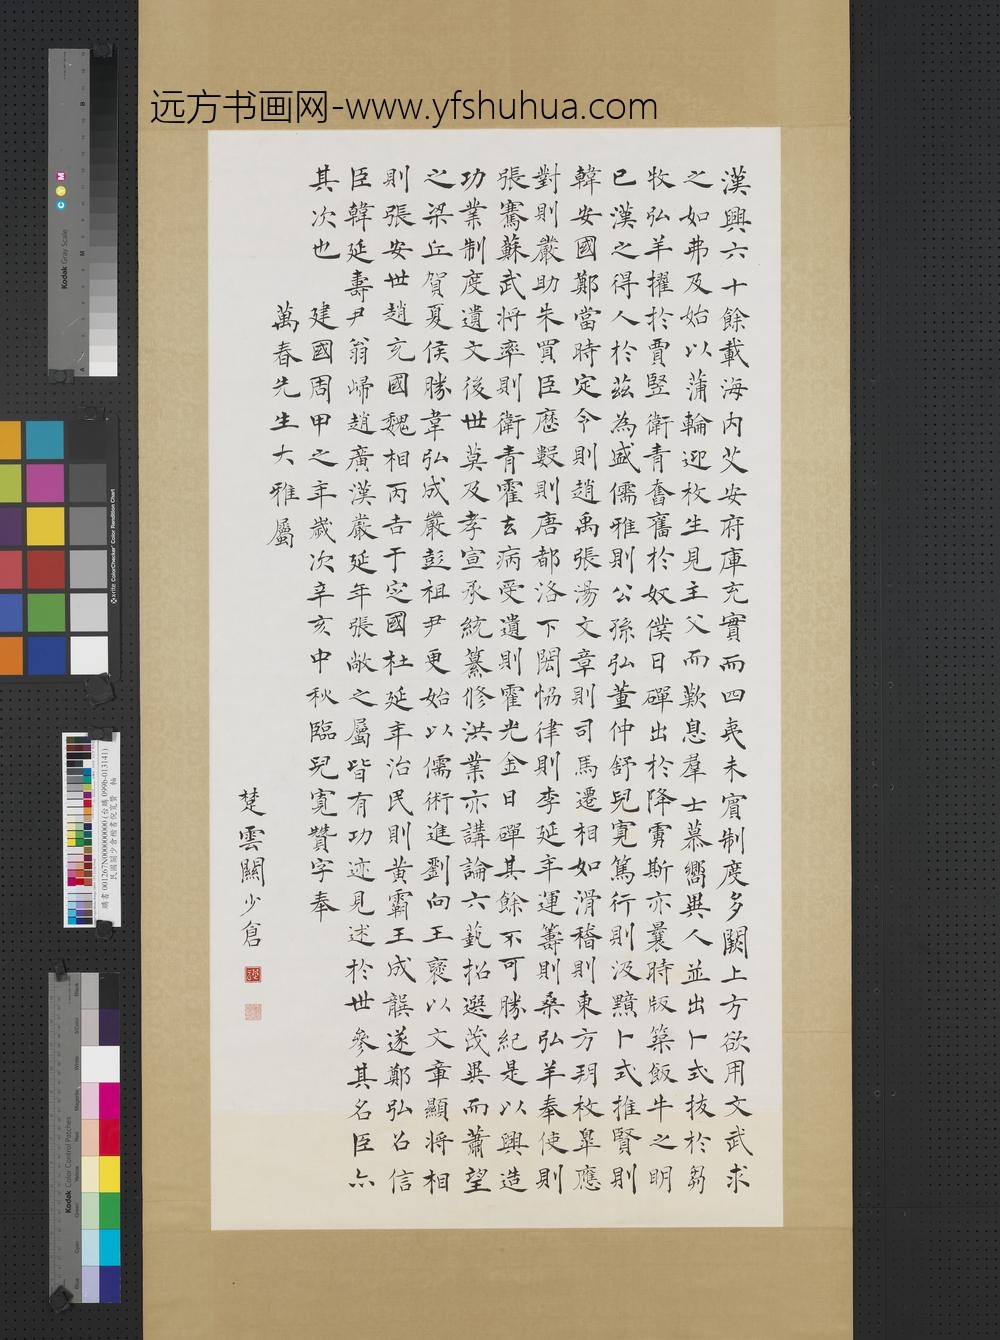 远方书画网-www.yfshuhua.com
漢興六十餘載海内艾安府庫充實而四夷未賓制度多闕上方欲用文武求
之如弗及始以蒲輪迎枚生見主父而歎息羣士慕嚮異人並出卜式拔於芻
牧弘羊擢於賈豎衛青奮舊於奴僕日磾出於降虜斯亦曩時版築飯牛之明
已漢之得人於茲為盛儒雅則公孫弘董仲舒兒寬篤行則汲黯卜式推賢則
韓安國鄭當時定令則趙禹張湯文章則司馬遷相如滑稽則東方朔枚皋應
對則嚴助朱買臣歷數則唐都洛下閎恊律則李延年運籌則桑弘羊奉使則
張騫蘇武将率則衛青霍去病受遺則霍光金日磾其餘不可勝紀是以興造
功業制度遺文後世莫及孝宣承統纂修洪業亦講論六藝招選茂異而蕭望
之梁丘賀夏侯勝韋弘成嚴彭祖尹更始以儒術進劉向王褒以文章顯将相
則張安世趙充國魏相丙吉于定國杜延年治民則黃霸王成龔遂鄭弘召信
臣韓延壽尹翁歸趙廣漢嚴延年張敞之屬皆有功迹見述於世參其名臣亦
其次也 建國周甲之年歲次辛亥中秋臨兒寬贊字奉
萬春先生大雅屬
楚雲關少倉
Kodak Gray Scale
C Y M
A M B
x-rite ColorChecker Color Rendition Chart
Kodak Color Control Patches